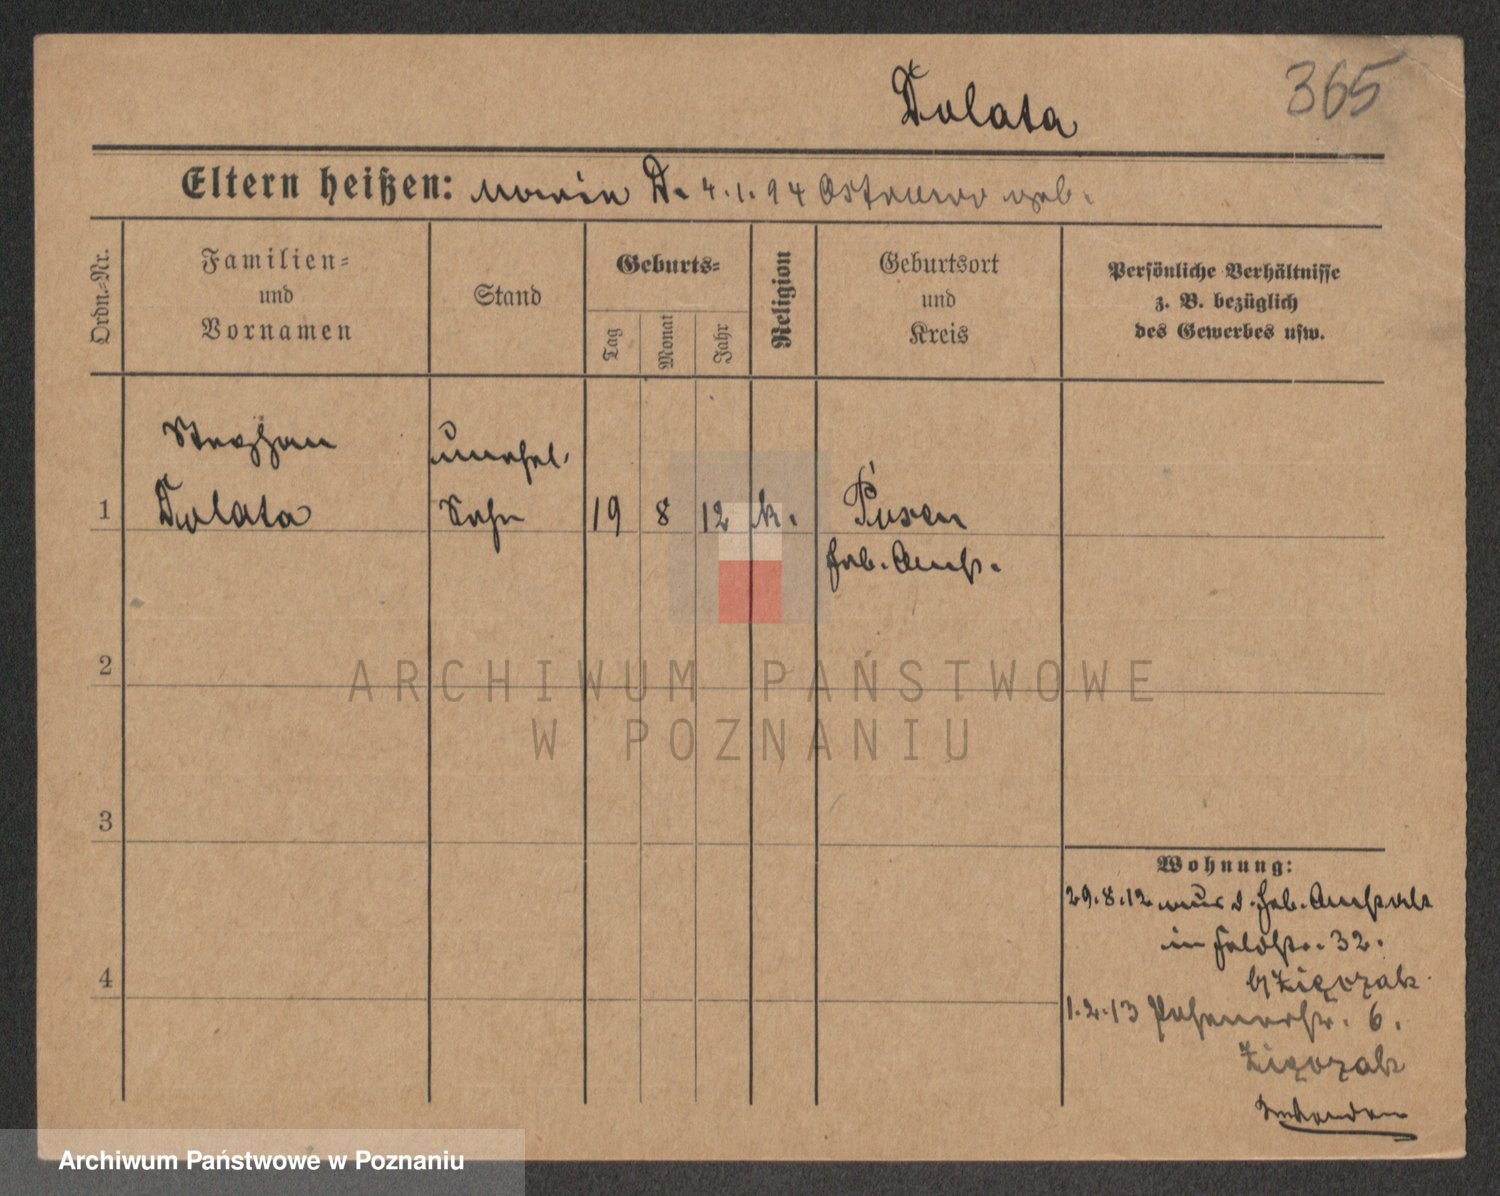 365
Dolata
Eltern heißen: Maria D. 4.1.94 Ostrowo geb.
Ordn.-Nr.
Familien- und Vornamen
Stand
Geburts-
Tag
Monat
Jahr
Religion
Geburtsort und Kreis
Persönliche Verhältnisse z. B. bezüglich des Gewerbes usw.
Stephan unehel.
1 Dolata Sohn 19 8 12 k. Posen
Heb. Anst.
2
3
4
Wohnung:
29.8.12 aus d. Heb. Anstalt
in Feldstr. 32.
b/
1.2.13 6.
ARCHIWUM PAŃSTWOWE
W POZNANIU
Archiwum Państwowe w Poznaniu